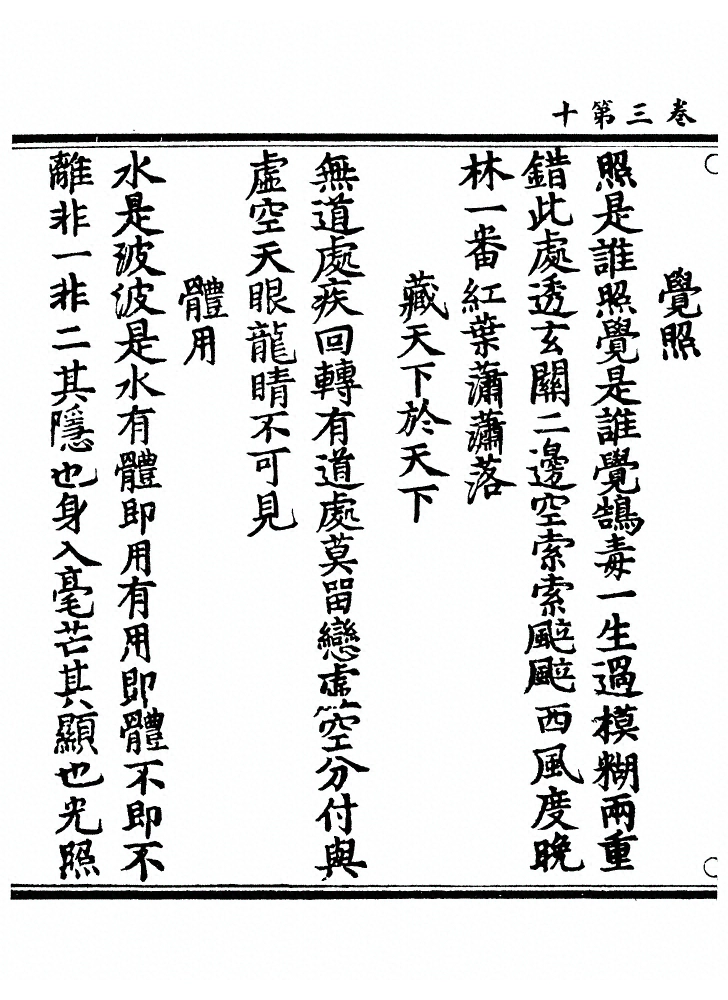 卷三第十
覺照
照是誰照覺是誰覺鵠毒一生過模糊兩重
錯此處透玄關二邊空索索颭颭西風度晚
林一番紅葉瀟瀟落
藏天下於天下
無道處疾回轉有道處莫留戀虛空分付與
虛空天眼龍睛不可見
體用
水是波波是水有體即用有用即體不即不
離非一非二其隱也身入毫芒其顯也光照